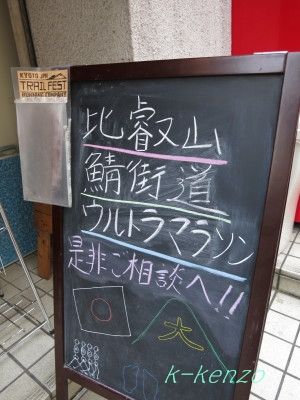 KYOTO
TRAIL FEST
RUNNING COMPANY
比叡山
鯖街道
ウルトラマラソン
是非ご相談へ!!
大
k-kenzo